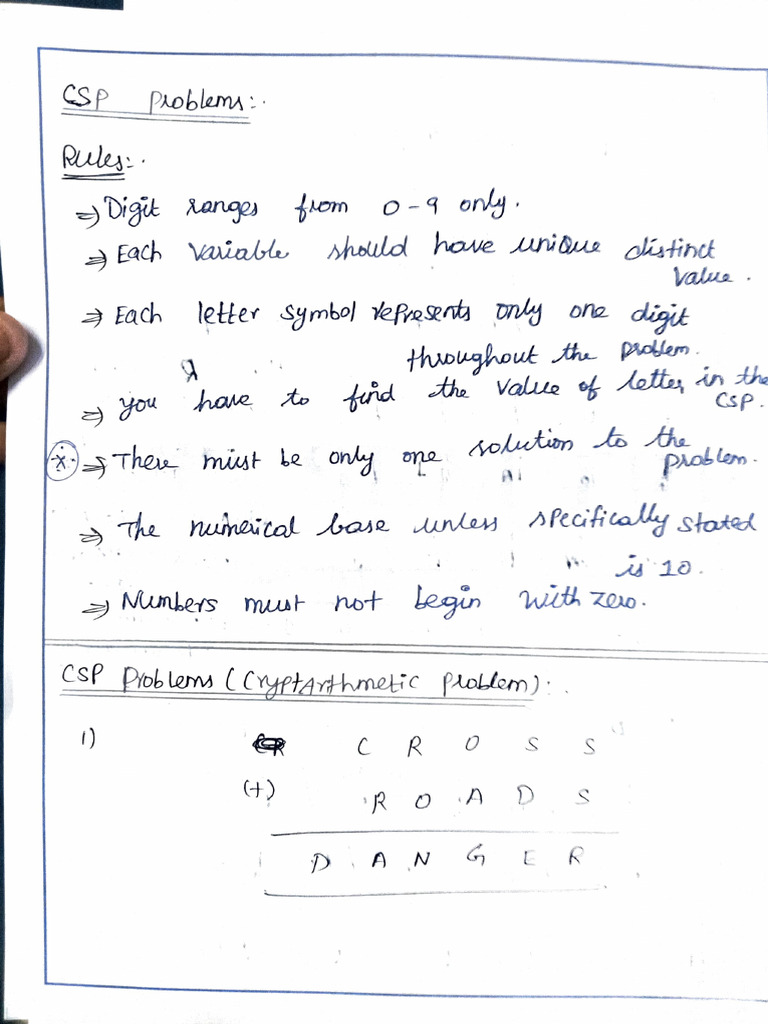 CSP Problems:.
Rules:.
⇒ Digit ranges from 0-9 only.
⇒ Each variable should have unique distinct
value.
⇒ Each letter symbol represents only one digit
throughout the problem.
⇒ you have to find the value of letter in the
CSP.
* ⇒ There must be only one solution to the
problem.
⇒ The numerical base unless specifically stated
is 10.
⇒ Numbers must not begin with zero.
CSP Problems (CryptArthmetic problem):.
1) C R O S S
(+) R O A D S
D A N G E R